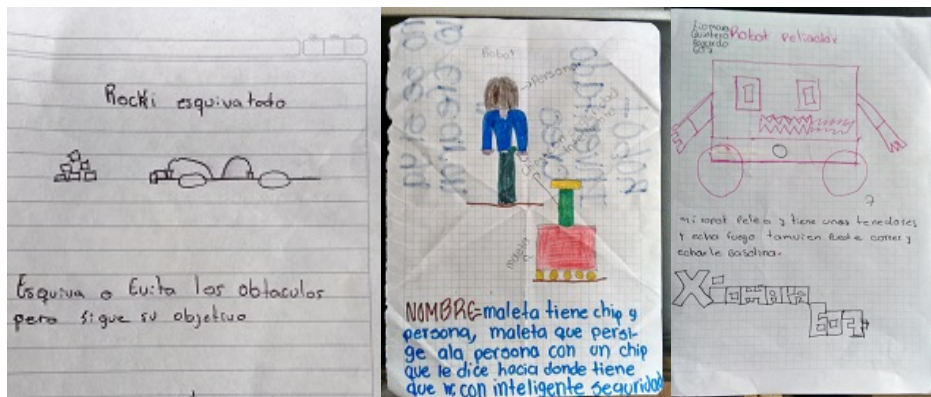 Rocki esquivatodo
Esquiva o Evita los obstaculos
pero sigue su objetivo
Robot
Persona
NOMBRE=maleta tiene chip y
persona, maleta que persi-
ge ala persona con un chip
que le dice hacia donde tiene
que ir, con inteligente seguridad
Xiomara
Quintero
Fajardo
Robot peliador
mi robot Pelea y tiene unos tenedores
y echa fuego tamvien puede correr y
echarle gasolina.